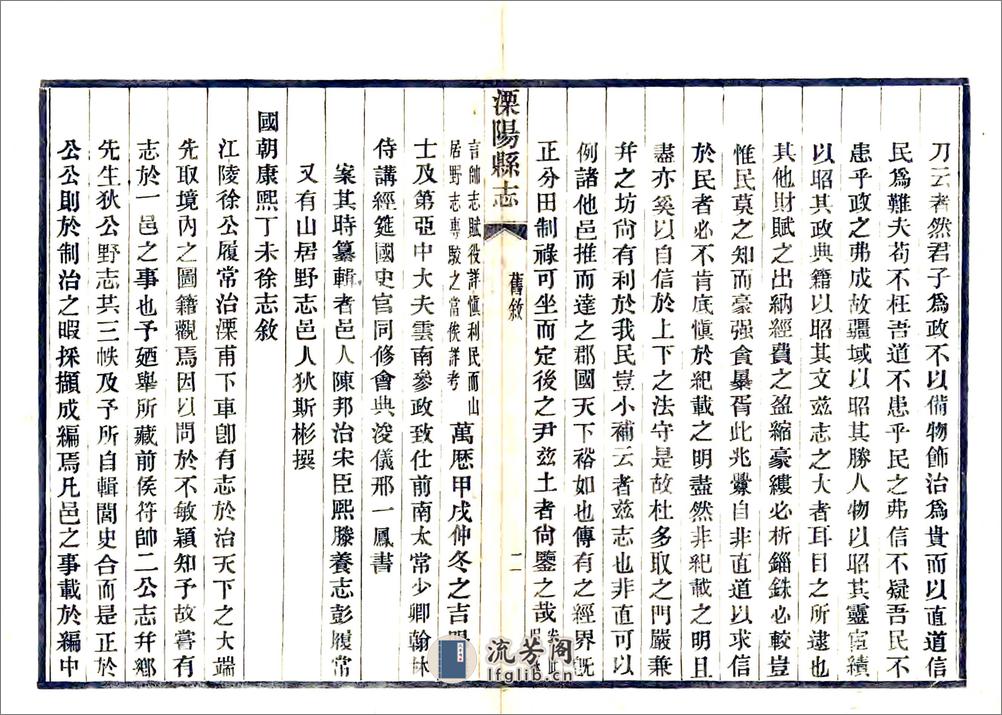 刀云者然君子爲政不以備物飾治爲貴而以直道信
民爲難夫苟不枉吾道不患乎民之弗信不疑吾民不
患乎政之弗成故疆域以昭其勝人物以昭其靈宦績
以昭其政典籍以昭其文茲志之大者耳目之所逮也
其他財賦之出納經費之盈縮豪縷必析錙銖必較豈
惟民莫之知而豪强食暴胥此兆釁自非直道以求信
於民者必不肯底愼於紀載之明盡然非紀載之明且
盡亦奚以自信於上下之法守是故杜多取之門嚴兼
幷之坊尙有利於我民豈小補云者茲志也非直可以
例諸他邑推而達之郡國天下裕如也傳有之經界旣
正分田制祿可坐而定後之尹茲土者尙鑒之哉
溧陽縣志
舊敘
二
言帥志賦役詳愼利民而山
居野志專駮之當俟詳考
萬厯甲戌仲冬之吉
士及第亞中大夫雲南參政致仕前南太常少卿翰林
侍講經筵國史官同修會典浚儀邢一鳳書
案其時纂輯者邑人陳邦治宋臣熙滕養志彭履常
又有山居野志邑人狄斯彬撰
國朝康熙丁未徐志敘
江陵徐公履常治溧甫下車卽有志於治天下之大端
先取境內之圖籍觀焉因以問於不敏穎知予故嘗有
志於一邑之事也予廼舉所藏前侯符帥二公志幷鄉
先生狄公野志共三帙及予所自輯閭史合而是正於
公公則於制治之暇採擷成編焉凡邑之事載於編中
流芳阁
lfglib.cn